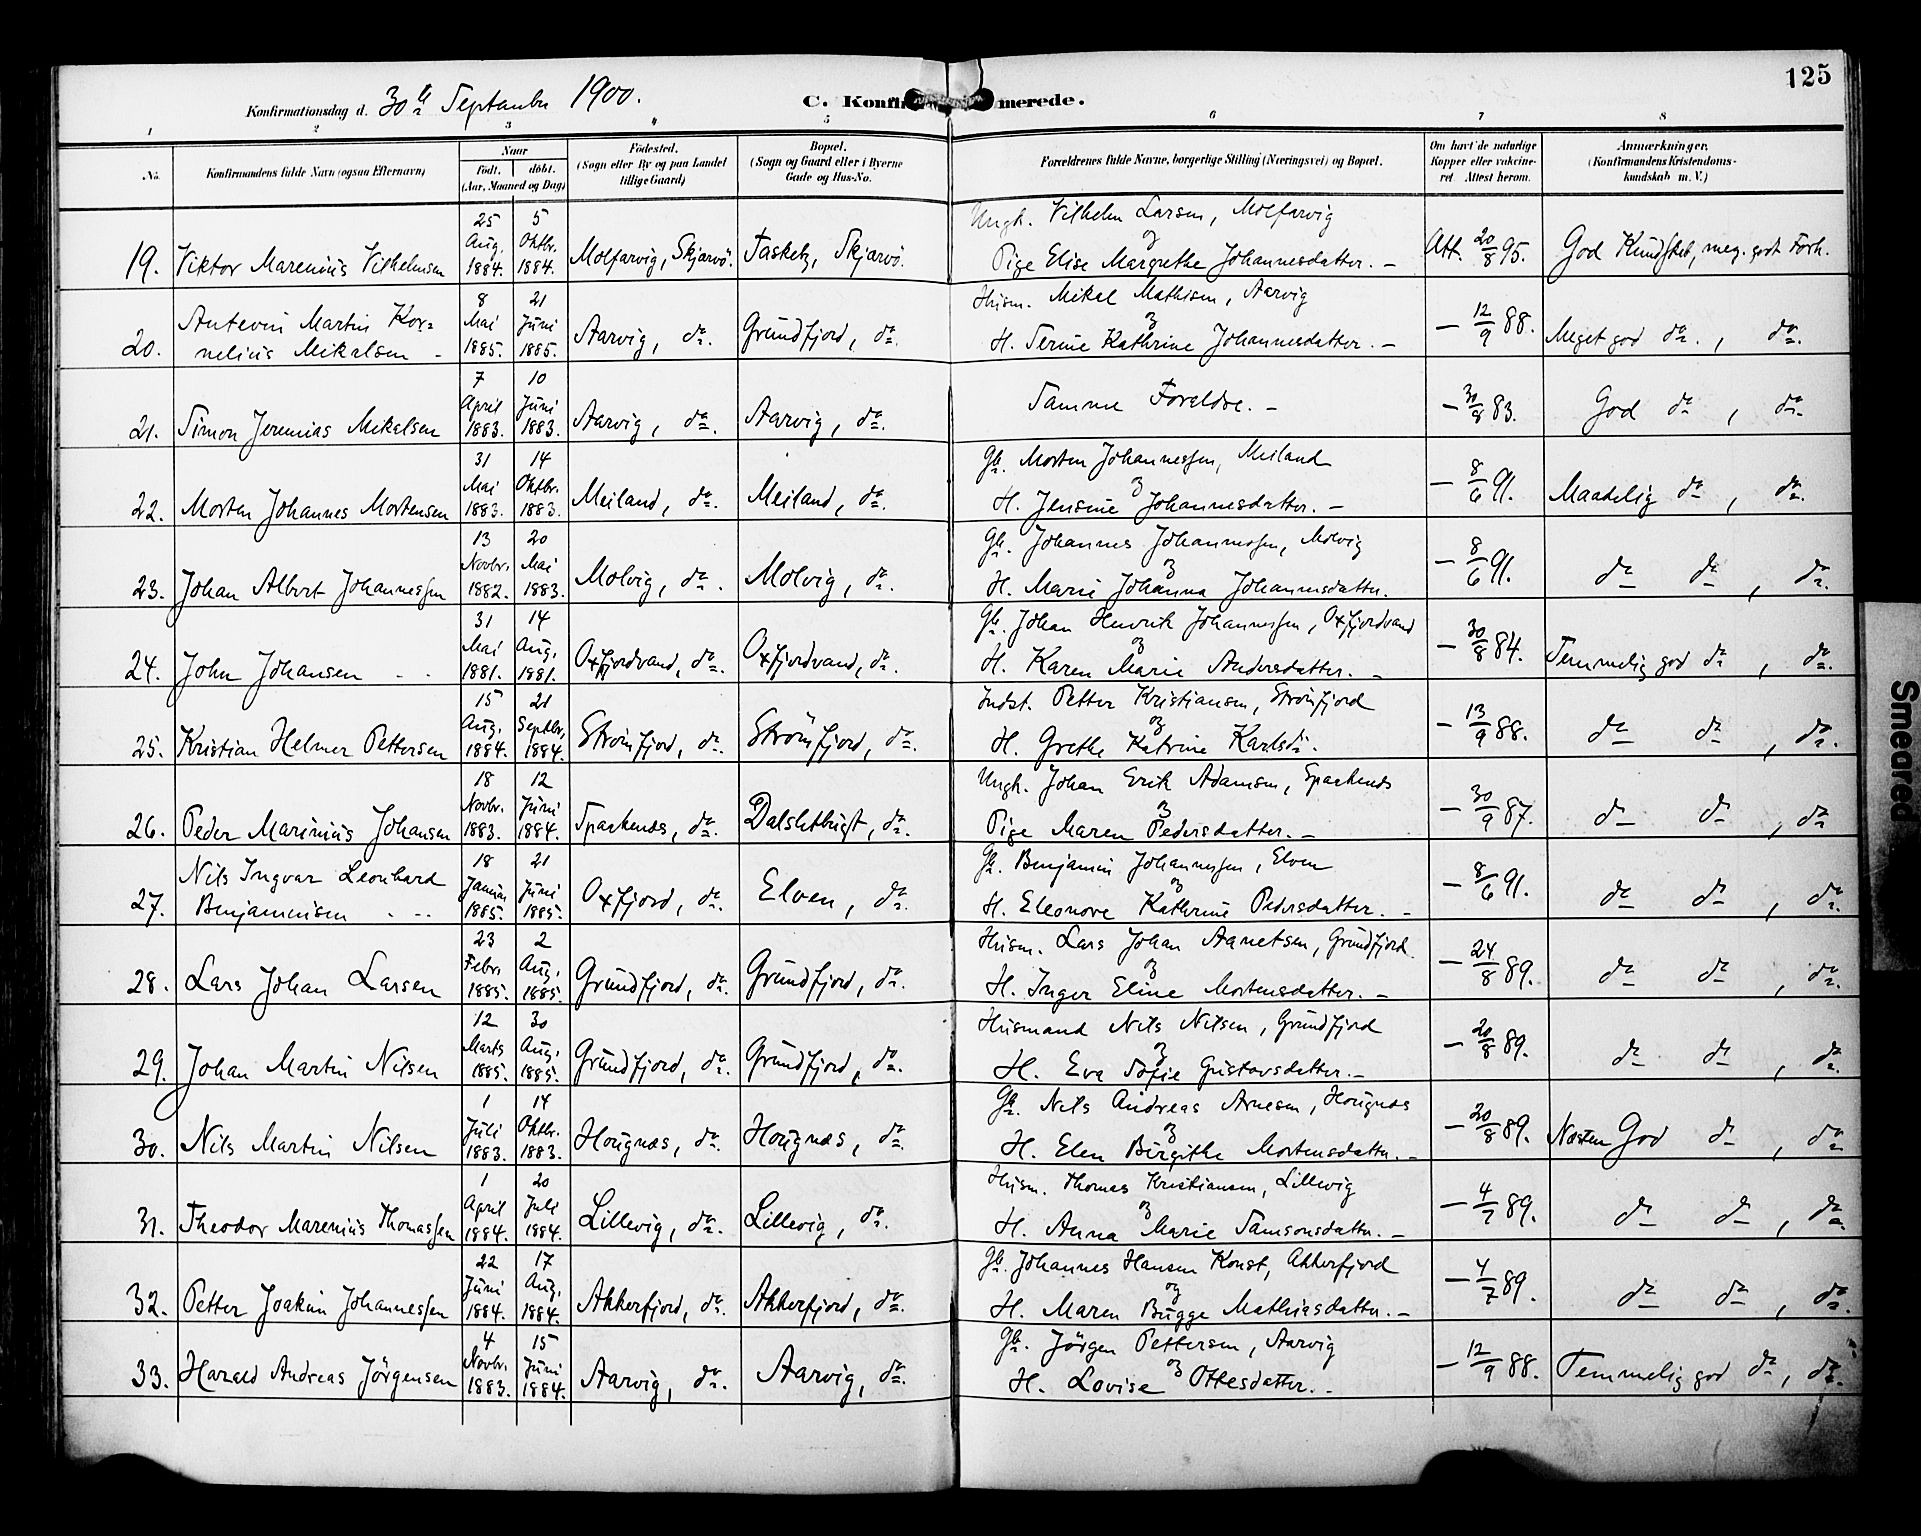 125
Konfirmationsdag d. 30te September 1900. C. Konfi merede.
1 2 3 4 5 6 7 8
No. Konfirmandens fulde Navn (ogsaa Efternavn) Naar født. døbt. (Aar, Maaned og Dag) Fødested. (Sogn eller By og paa Landet tillige Gaard) Bopæl. (Sogn og Gaard eller i Byerne Gade og Hus-No. Forældrenes fulde Navne, borgerlige Stilling (Næringsvei) og Bopæl. Om havt de naturlige Kopper eller vakcineret. Attest herom. Anmærkninger. (Konfirmandens Kristendomskundskab m. V.)
19. Viktor Marenius Vilhelmsen 25 Aug. 1884. 5 Oktbr. 1884. Molfarvig, Skjærvö. Taskeby, Skjærvö. Ungk. Vilhelm Larsen, Molfarvig
og
Pige Elise Margrethe Johannesdatter. – Att. 20/8 95. God Kundskab, meg. godt Forh.
20. Antevin Martin Kor=
nelius Mikalsen – 8 Mai 1885. 21 Juni 1885. Aarvig, do. Grundfjord, do. Husm. Mikal Mathisen, Aarvig
og
H. Serine Kathrine Johannesdatter. – – 12/9 88. Meget god do., do.
21. Simon Jeremias Mikalsen 7 April 1883. 10 Juni 1883. Aarvig, do. Aarvig, do. Samme Foreldre. – – 30/8 83. God do, do.
22. Morten Johannes Mortensen 31 Mai 1883. 14 Oktbr. 1883. Meiland, do. Meiland, do. Gb. Morten Johannessen, Meiland
og
H. Jensine Johannesdatter. – – 8/6 91. Maadelig do, do.
23. Johan Albert Johannessen 13 Novbr. 1882. 20 Mai 1883. Molvig, do. Molvig, do. Gb. Johannes Johannessen, Molvig
og
H. Marie Johanna Johannesdatter. – 8/6 91. do do, do.
24. John Johansen 31 Mai 1881. 14 Aug. 1881. Oxfjordvand, do. Oxfjordvand, do. Gb. Johan Henrik Johannessen, Oxfjordvand
og
H. Karen Marie Andersdatter. – – 30/8 84. Temmelig god do, do.
25. Kristian Helmer Pettersen 15 Aug. 1884. 21 Septbr. 1884. Strömfjord, do. Strömfjord, do. Indst. Petter Kristiansen, Strömfjord
og
H. Grethe Katrine Karlsd. – 13/9 88. do do, do.
26. Peder Marinius Johansen 18 Novbr. 1883. 12 Juni 1884. Spaakenes, do. Dalsletbugt, do. Ungk. Johan Erik Adamsen, Spaakenes
og
Pige Maren Pedersdatter. – – 30/9 87. do do, do
27. Nils Ingvar Leonhard
Benjaminsen 18 Januar 1885. 21 Juni 1885. Oxfjord, do. Elven, do. Gb. Benjamin Johannessen, Elven
og
H. Eleonore Kathrine Pedersdatter. – – 8/6 91. do do, do.
28. Lars Johan Larsen 23 Febr. 1885. 2 Aug. 1885. Grundfjord, do. Grundfjord, do. Husm. Lars Johan Aanetsen, Grundfjord
og
H. Inger Eline Mortensdatter. – – 24/8 89. do do, do.
29. Johan Martin Nilsen 12 Marts 1885. 30 Aug. 1885. Grundfjord, do. Grundfjord, do. Husmand Nils Nilsen, Grundfjord
og
H. Eva Sofie Gustavsdatter. – – 20/8 89. do do, do.
30. Nils Martin Nilsen 1 Juli 1883. 14 Oktbr. 1883. Hougnæs, do. Hougnæs, do. Gb. Nils Andreas Arnesen, Hougnæs
og
H. Elen Birgithe Mortensdatter. – – 20/8 89. Næsten God do, do
31. Theodor Marenius Thomassen 1 April 1884. 20 Juli 1884. Lillevig, do. Lillevig, do. Husm. Thomas Kristiansen, Lillevig
og
H. Anna Marie Samsonsdatter. – – 4/7 89. do do, do.
32. Petter Joakim Johannessen 22 Juni 1884. 17 Aug. 1884. Akkerfjord, do. Akkerfjord, do. Gb. Johannes Hansen Konst, Akkerfjord
og
H. Maren Bugge Mathiasdatter. – – 4/7 89. do do, do.
33. Harald Andreas Jörgensen 4 Novbr. 1883. 15 Juni 1884. Aarvig, do. Aarvig, do. Gb. Jörgen Pettersen, Aarvig
og
H. Lovise Ottesdatter. – – 12/9 88. Temmelig god do, do.
Smeared